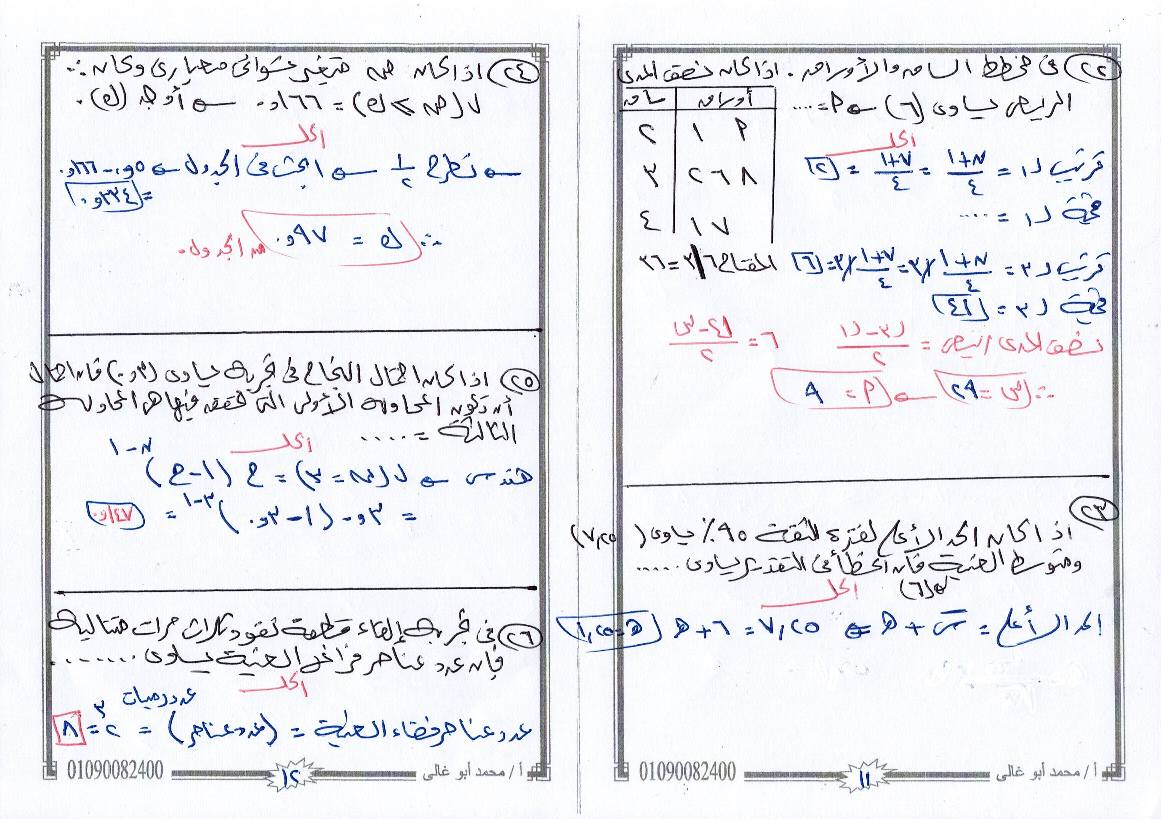 (٢٢) فى مخطط الساق والأوراق . اذا كان نصف المدى
الربيعى يساوى (٦) فإن P = ....
ساق | أوراق
٢ | ١ P
٣ | ٢ ٦ ٨
٤ | ١ ٧
المفتاح ٦|٣ = ٣٦
الحل
ترتيب ر١ = (ن+١)/٤ = (٧+١)/٤ = ٢
قيمة ر١ = ....
ترتيب ر٣ = (ن+١)/٤ × ٣ = (٧+١)/٤ × ٣ = ٦
قيمة ر٣ = ٤١
نصف المدى الربيعى = (ر٣ - ر١)/٢
٦ = (٤١ - س)/٢
∴ س = ٢٩ ← P = ٩
(٢٣)
اذا كان الحد الأعلى لفترة الثقة ٩٥٪ يساوى (٧,٢٥)
ومتوسط العينة (٦) فإن الخطأ فى التقدير يساوى .....
الحل
الحد الأعلى = س̄ + هـ ← ٧,٢٥ = ٦ + هـ ← هـ = ١,٢٥
أ / محمد أبو غالى
١١
01090082400
(٢٤) اذا كان ص متغير عشوائى معيارى وكان :
ل(ص ≥ ك) = ١٦٦,٠ أوجد (ك) .
الحل
نطرح ١/٢ ← ابحث فى الجدول ← ٠,٥ - ٠,١٦٦
= ٠,٣٣٤
∴ ك = ٠,٩٧ من الجدول .
(٢٥) اذا كان احتمال النجاح فى تجربة يساوى (٠,٣) فإن احتمال
أن تكون المحاولة الأولى التى تحقق فيها هى المحاولة
الثالثة = .....
الحل
هندسى ← ل(س = ٣) = ح (١ - ح)^(ن-١)
= ٠,٣ (١ - ٠,٣)^(٣-١) = ٠,١٤٧
(٢٦) فى تجربة إلقاء قطعة نقود ثلاث مرات متتالية
فإن عدد عناصر فراغ العينة يساوى ........
الحل
عدد عناصر فضاء العينة = (عدد عناصر)^عدد رميات = ٢^٣ = ٨
أ / محمد أبو غالى
١٢
01090082400